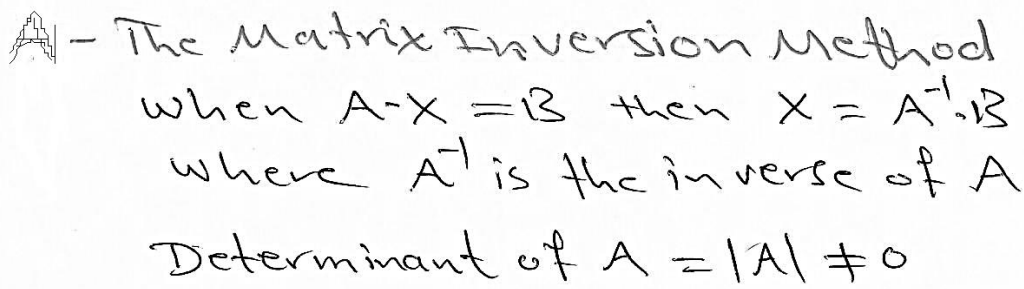 A - The Matrix Inversion Method
when A-X = B then X = A⁻¹.B
where A⁻¹ is the inverse of A
Determinant of A = |A| ≠ 0